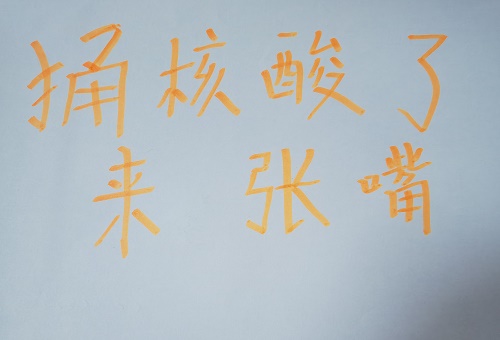 捅核酸了
来 张嘴